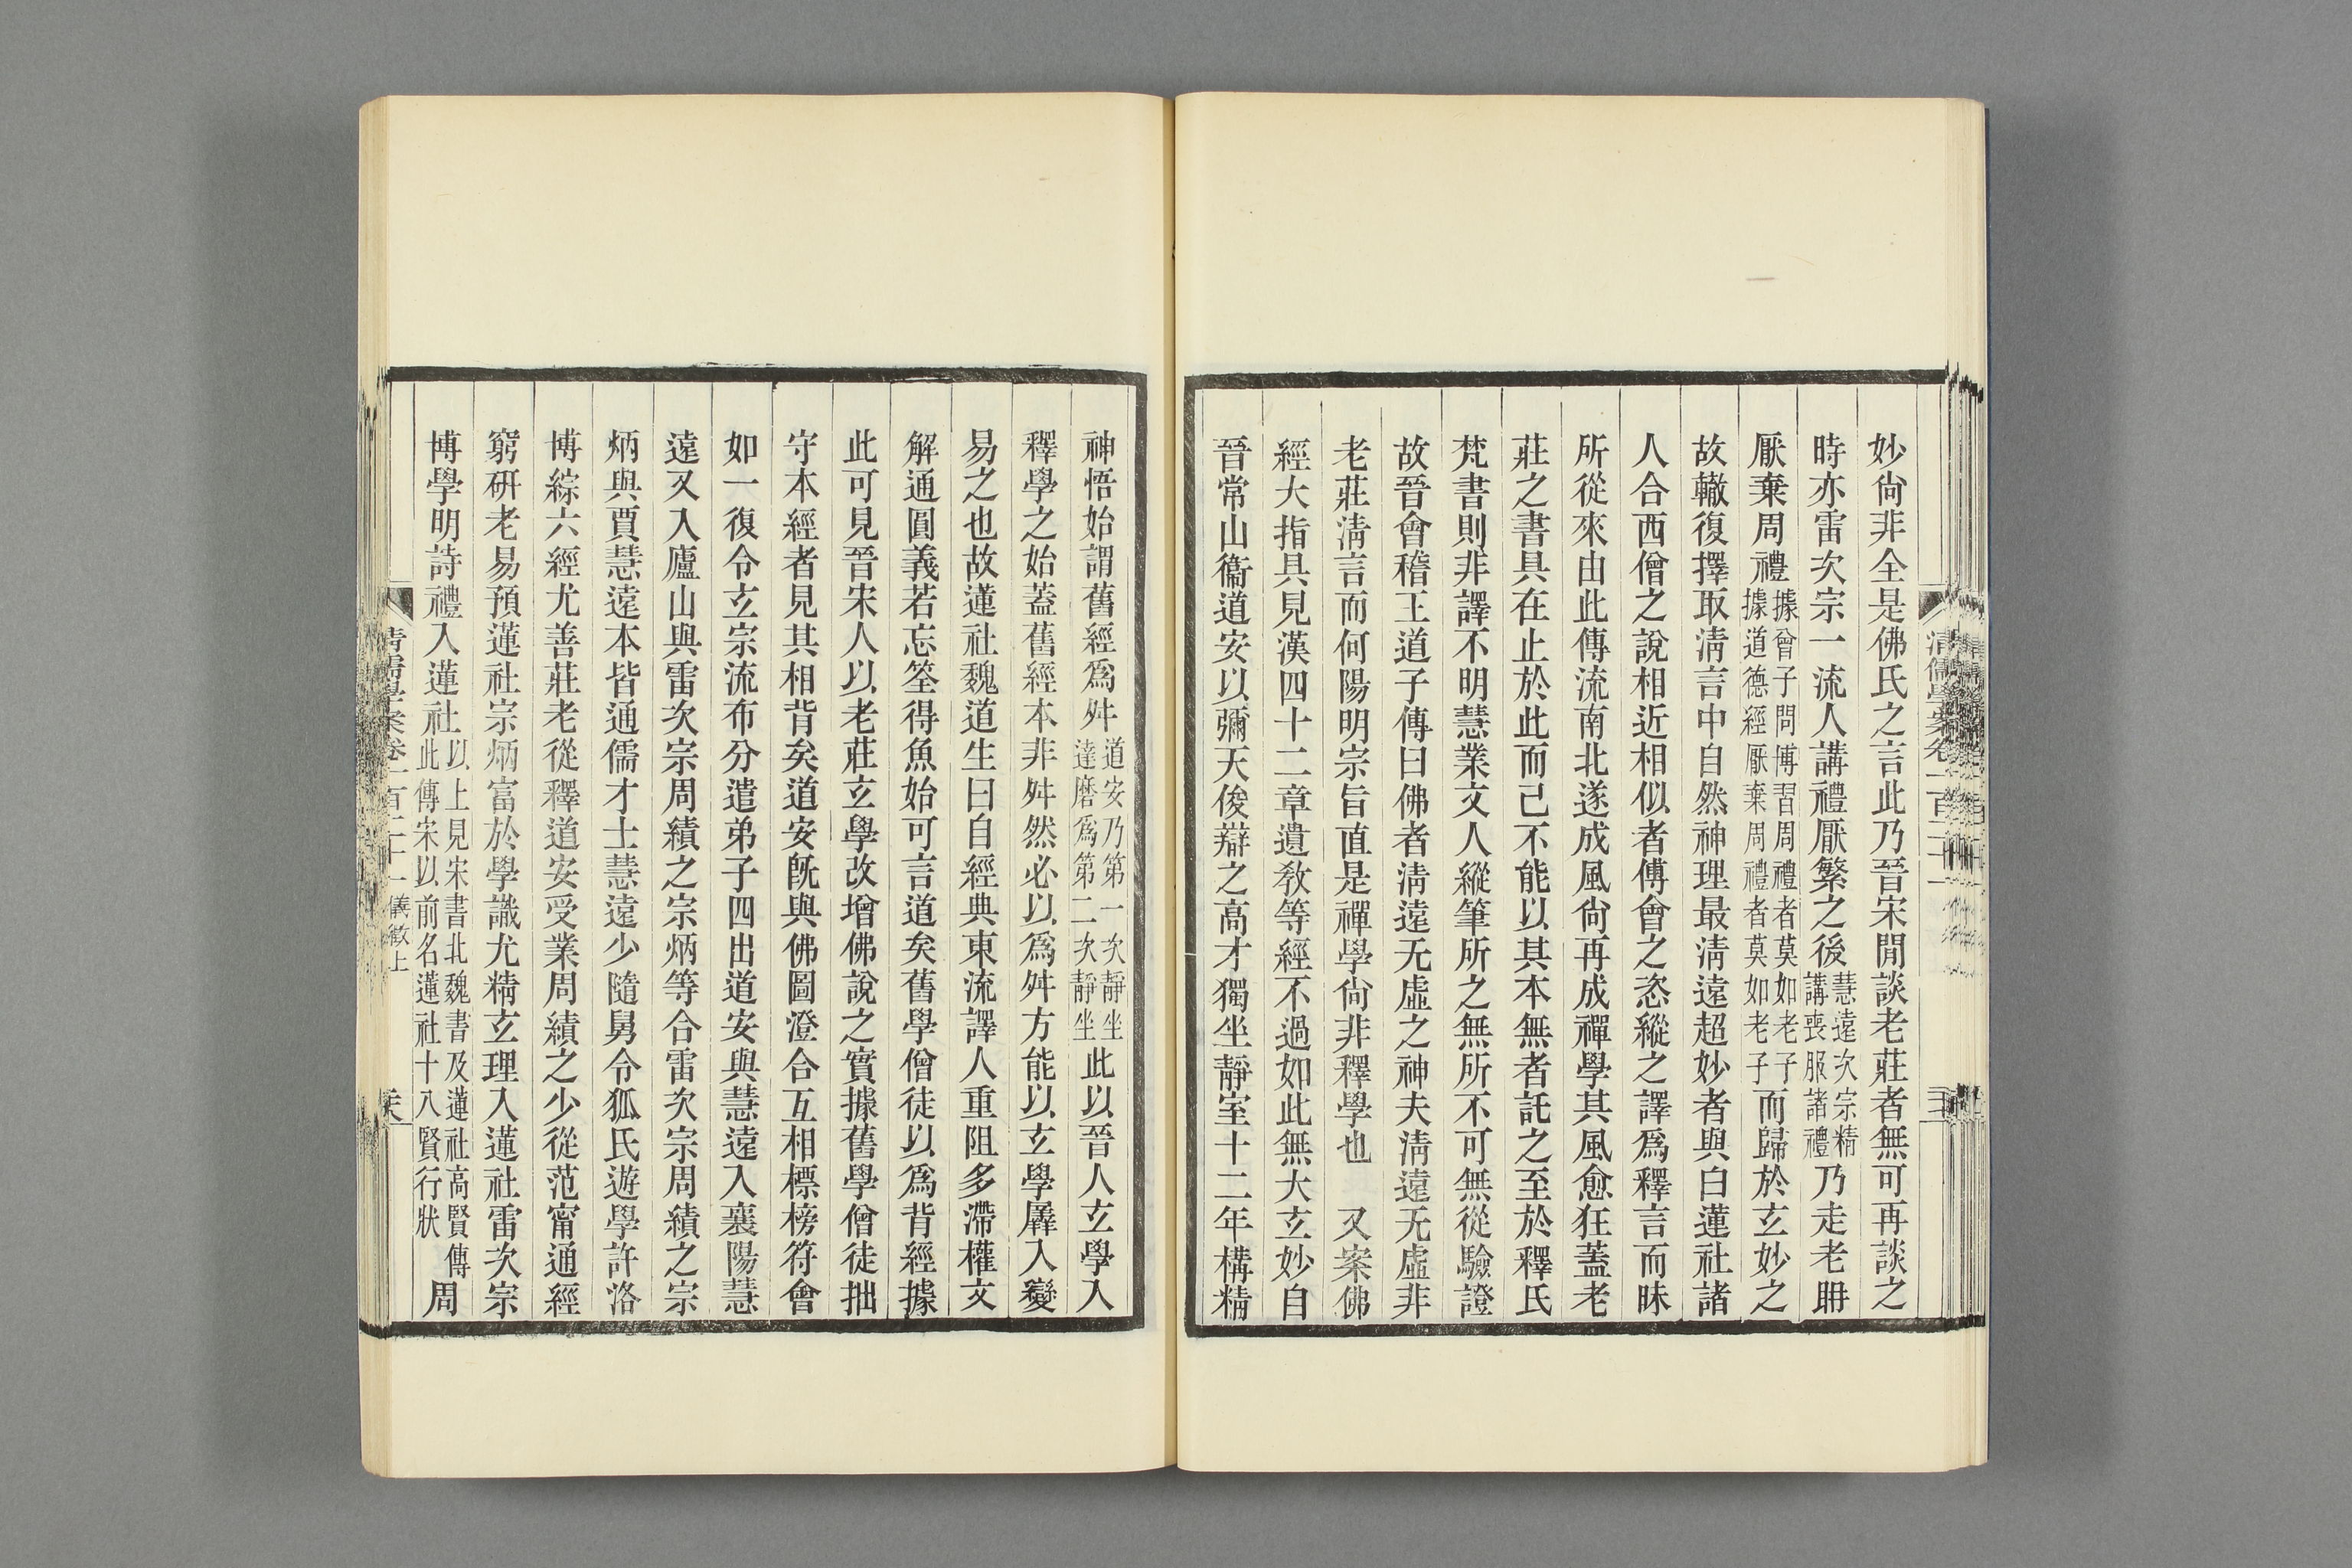 妙尙非全是佛氏之言此乃晉宋閒談老莊者無可再談之
時亦雷次宗一流人講禮厭繁之後慧遠次宗精講喪服諸禮乃走老耼
厭棄周禮據曾子問傅習周禮者莫如老子據道德經厭棄周禮者莫如老子而歸於玄妙之
故轍復擇取淸言中自然神理最淸遠超妙者與白蓮社諸
人合西僧之說相近相似者傅會之恣縱之譯爲釋言而昧
所從來由此傳流南北遂成風尙再成禪學其風愈狂蓋老
莊之書具在止於此而已不能以其本無者託之至於釋氏
梵書則非譯不明慧業文人縱筆所之無所不可無從驗證
故晉會稽王道子傳曰佛者淸遠无虛之神夫淸遠无虛非
老莊淸言而何陽明宗旨直是禪學尙非釋學也　又案佛
經大指具見漢四十二章遺敎等經不過如此無大玄妙自
晉常山衞道安以彌天俊辯之高才獨坐靜室十二年構精
神悟始謂舊經爲舛道安乃第一次靜坐達磨爲第二次靜坐此以晉人玄學入
釋學之始蓋舊經本非舛然必以爲舛方能以玄學羼入變
易之也故蓮社魏道生曰自經典東流譯人重阻多滯權文
解通圓義若忘筌得魚始可言道矣舊學僧徒以爲背經據
此可見晉宋人以老莊玄學改增佛說之實據舊學僧徒拙
守本經者見其相背矣道安旣與佛圖澄合互相標榜符會
如一復令玄宗流布分遣弟子四出道安與慧遠入襄陽慧
遠又入廬山與雷次宗周續之宗炳等合雷次宗周續之宗
炳與賈慧遠本皆通儒才士慧遠少隨舅令狐氏遊學許洛
博綜六經尤善莊老從釋道安受業周續之少從范甯通經
窮研老易預蓮社宗炳富於學識尤精玄理入蓮社雷次宗
博學明詩禮入蓮社以上見宋書北魏書及蓮社高賢傳此傳宋以前名蓮社十八賢行狀周
淸儒學案卷一百二十一 儀徵上